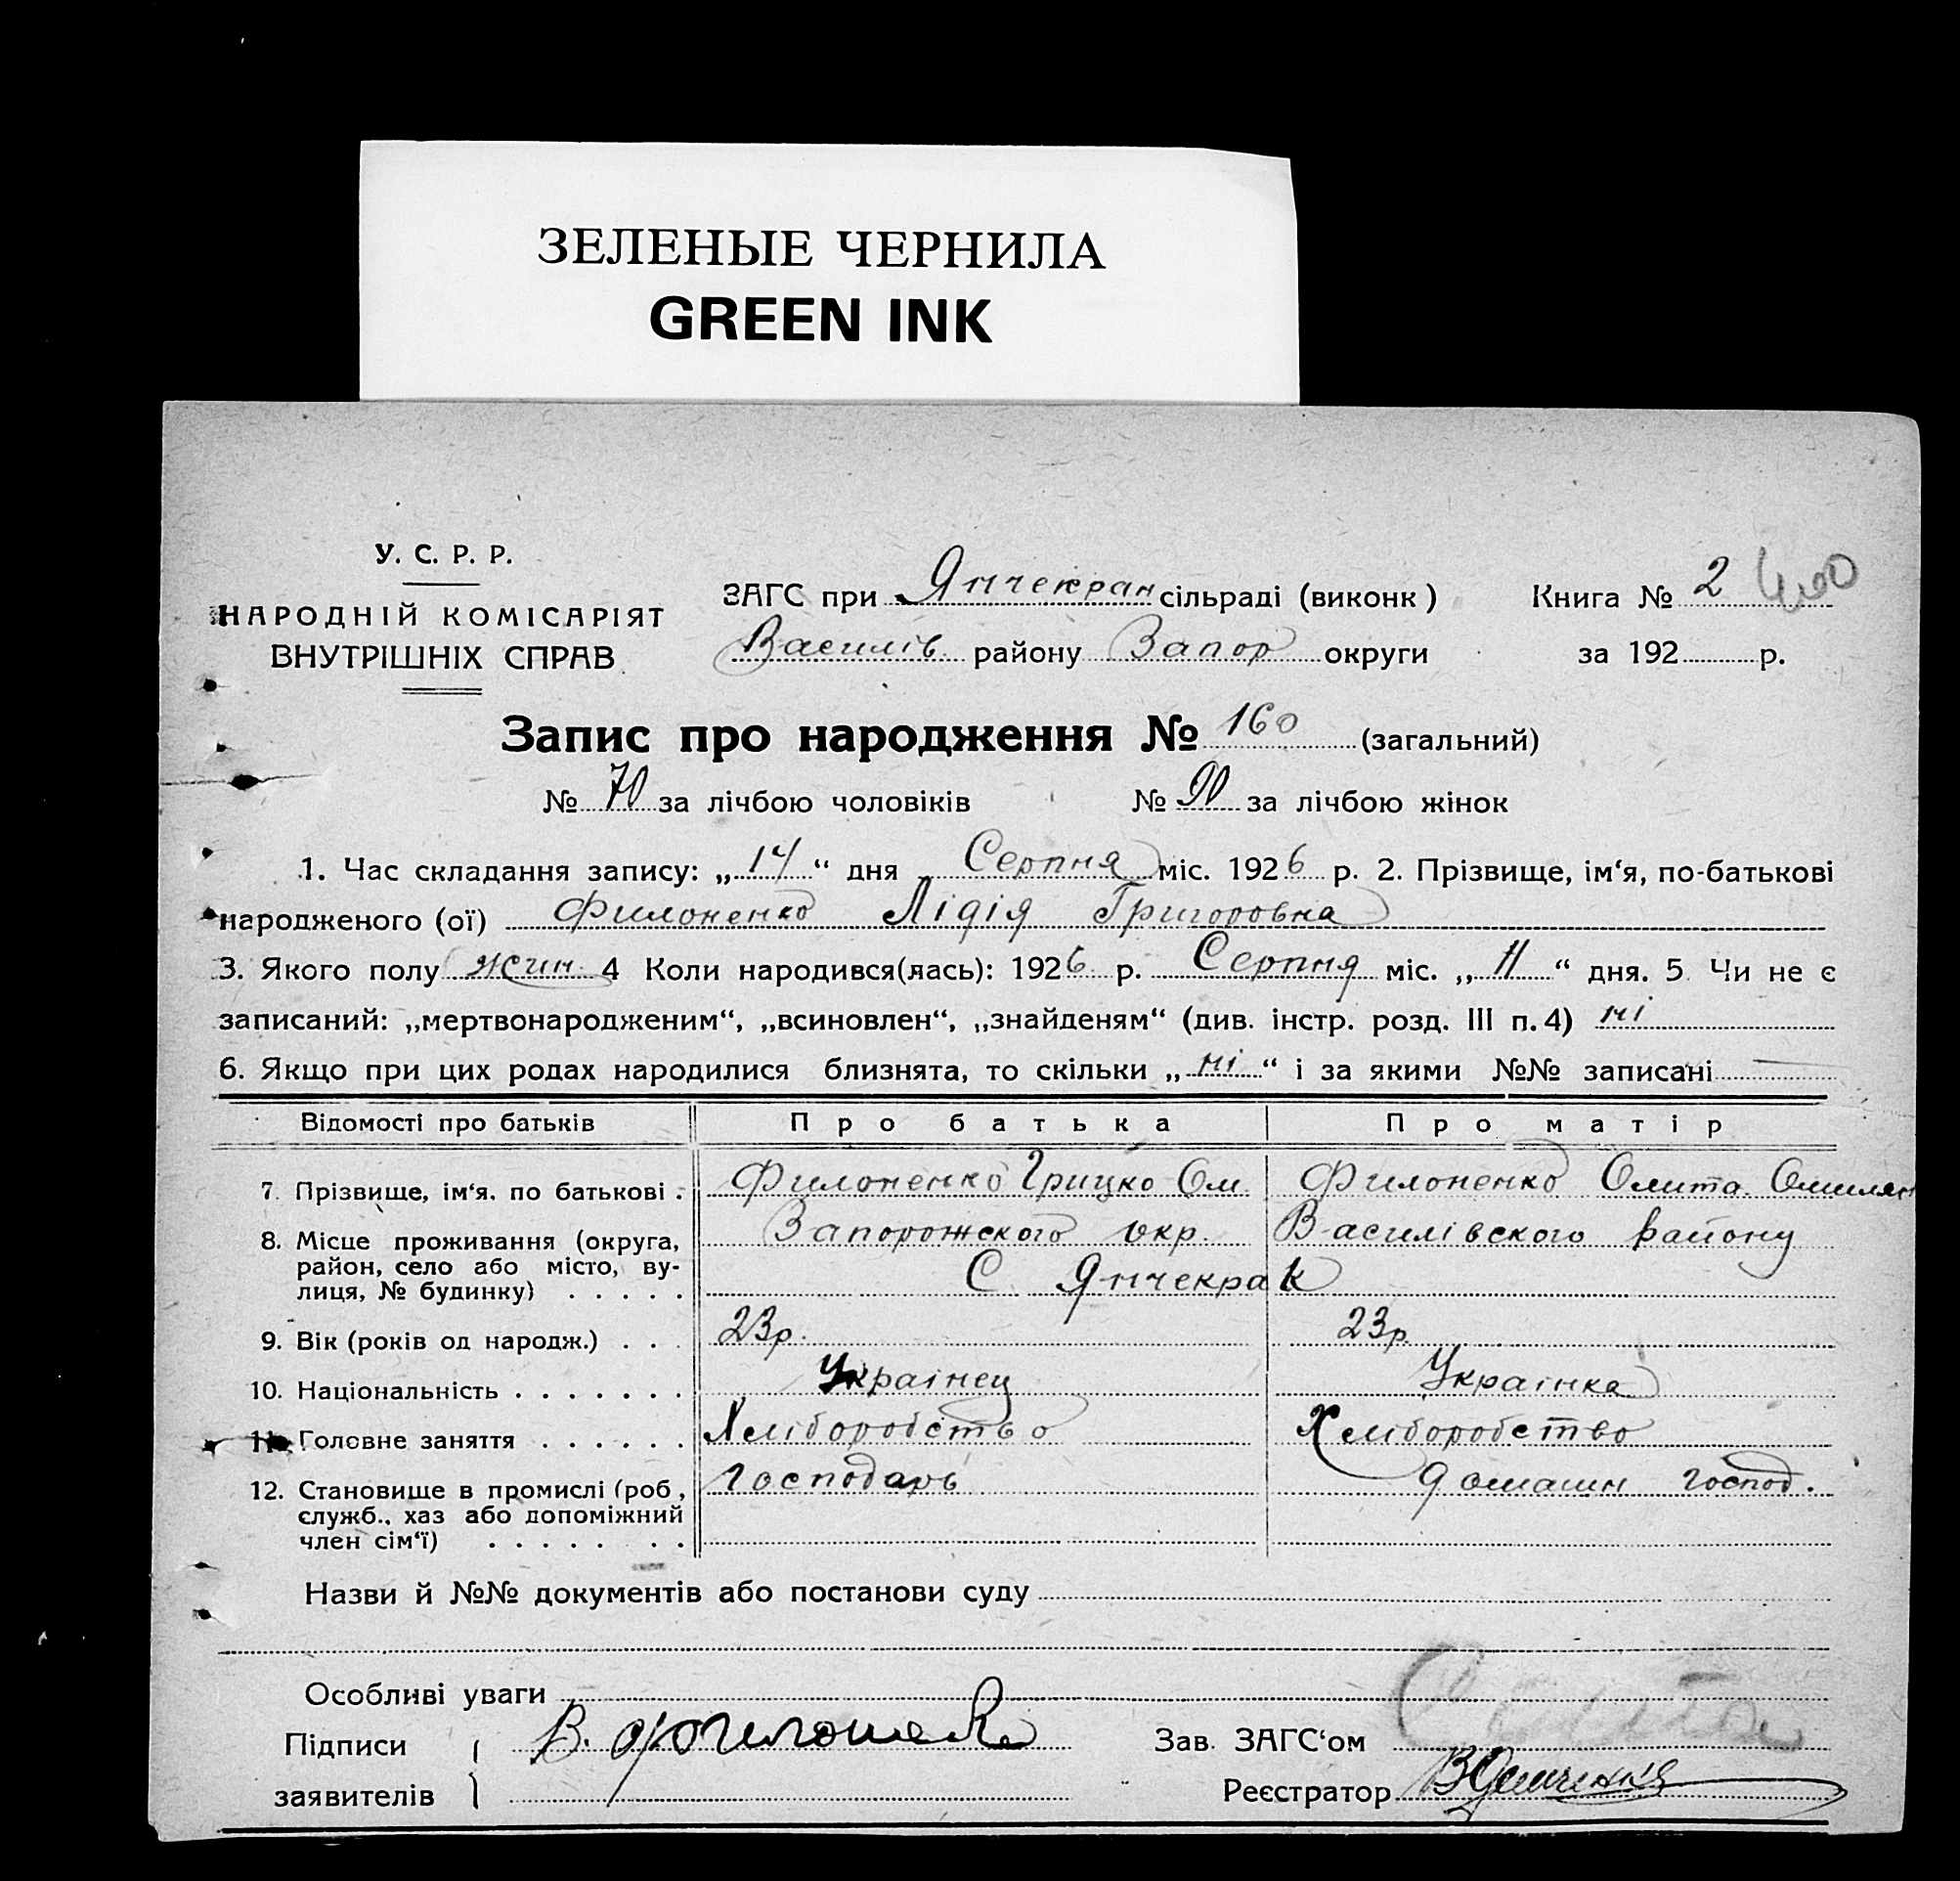 ЗЕЛЕНЫЕ ЧЕРНИЛА
GREEN INK
У. С. Р. Р.
НАРОДНІЙ КОМІСАРІЯТ
ВНУТРІШНІХ СПРАВ
ЗАГС при Янчекран сільраді (виконк)
Василів. району Запор округи
Книга № 2 400
за 192 р.
Запис про народження № 160 (загальний)
№ 70 за лічбою чоловіків № 90 за лічбою жінок
1. Час складання запису: „14“ дня Серпня міс. 1926 р. 2. Прізвище, ім‘я, по-батькові
народженого (ої) Филоненко Лідія Григоровна
3. Якого полу жин. 4 Коли народився(лась): 1926 р. Серпня міс. „11“ дня. 5 Чи не є
записаний: „мертвонародженим“, „всиновлен“, „знайденям“ (див. інстр. розд. III п. 4) ні
6. Якщо при цих родах народилися близнята, то скільки „ні“ і за якими №№ записані
Відомості про батьків Про батька Про матір
7. Прізвище, ім‘я. по батькові . Филоненко Грицко Ом. Филоненко
8. Місце проживання (округа, Запорожского окр. Василівского району
район, село або місто, ву- С Янчекрак
лиця, № будинку) . . . . .
9. Вік (років од народж.) . . . 23р. 23р.
10. Національність . . . . . . . Українец Українка
11. Головне заняття . . . . . . Хліборобство Хліборобство
12. Становище в промислі (роб, Господарь домашн господ.
служб., хаз або допоміжний
член сім‘ї) . . . . . . .
Назви й №№ документів або постанови суду
Особливі уваги
Підписи В. Филоненко Зав. ЗАГС‘ом
заявителів Реєстратор